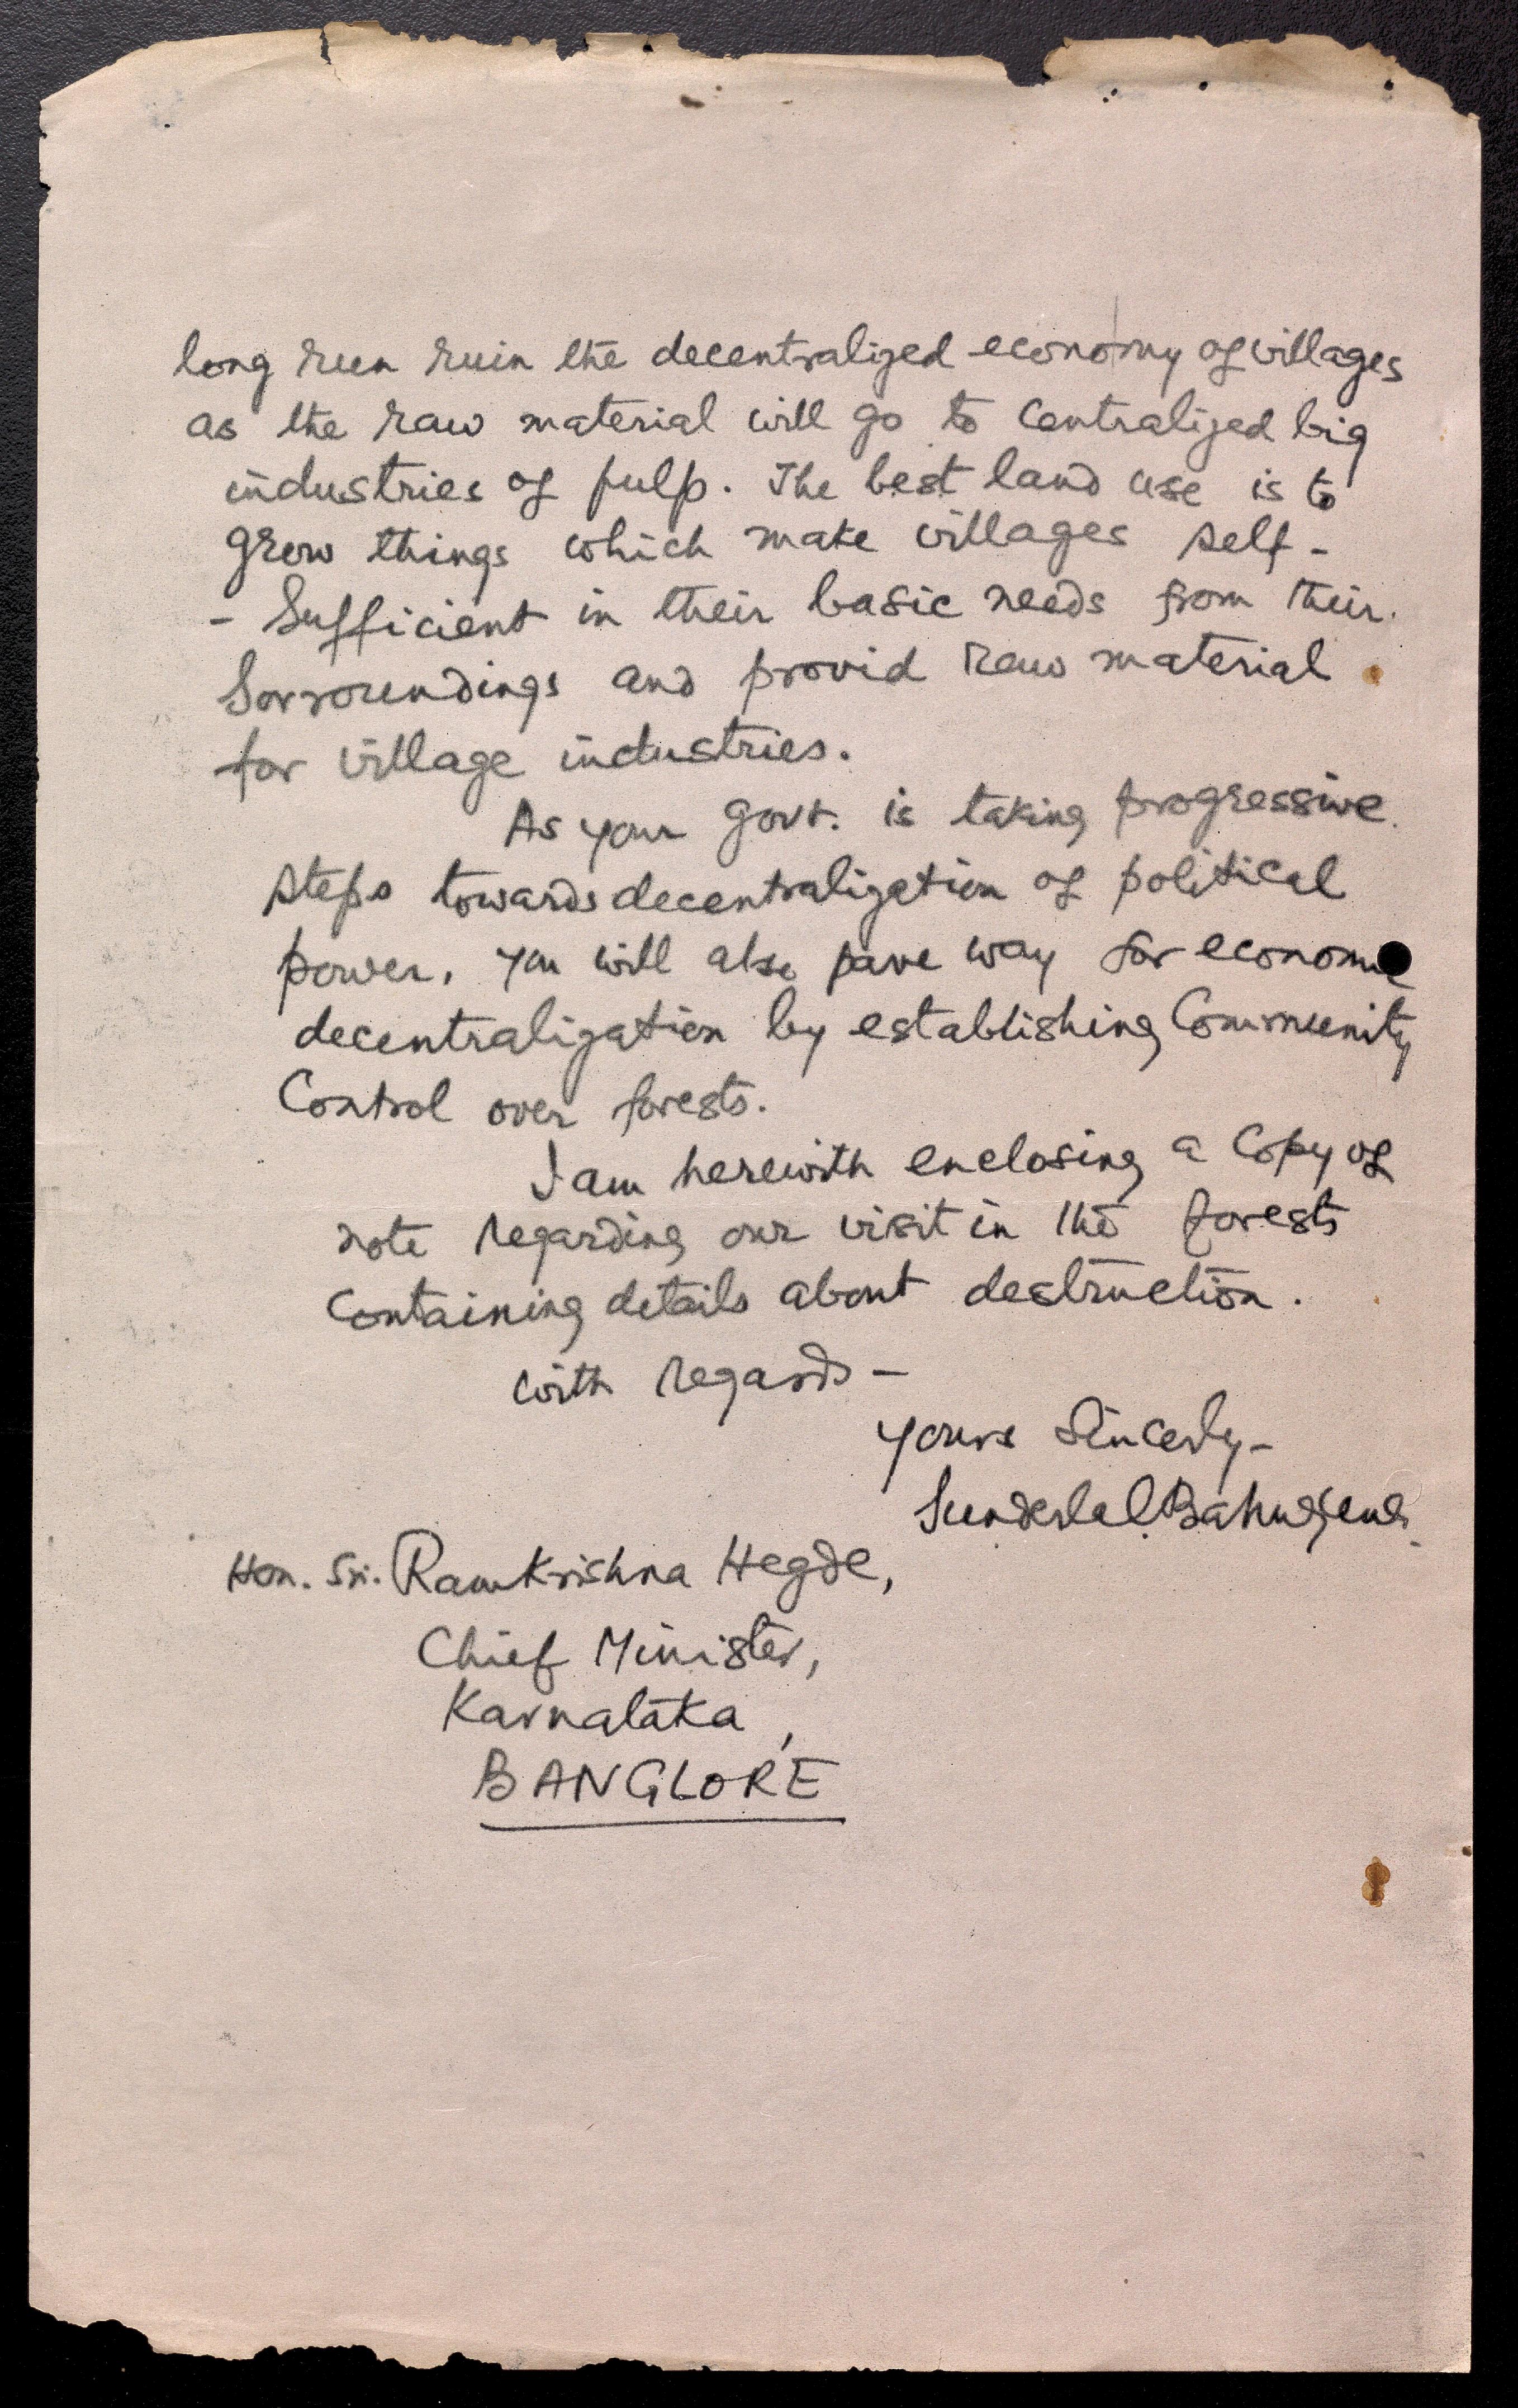 long run ruin the decentralized economy of villages
as the raw material will go to Centralized big
industries of pulp. The best land use is to
grow things which make villages self-
- Sufficient in their basic needs from their
Sorroundings and provid raw material
for village industries.
As your govt. is taking progressive
steps towards decentralization of political
power, you will also pave way for economic
decentralization by establishing Community
Control over forests.
I am herewith enclosing a Copy of
note regarding our visit in the forests
Containing details about destruction.
with regards-
yours Sincerly-
Sunderlal Bahuguna
Hon. Sri. Ramkrishna Hegde,
Chief Minister,
Karnataka,
BANGLORE